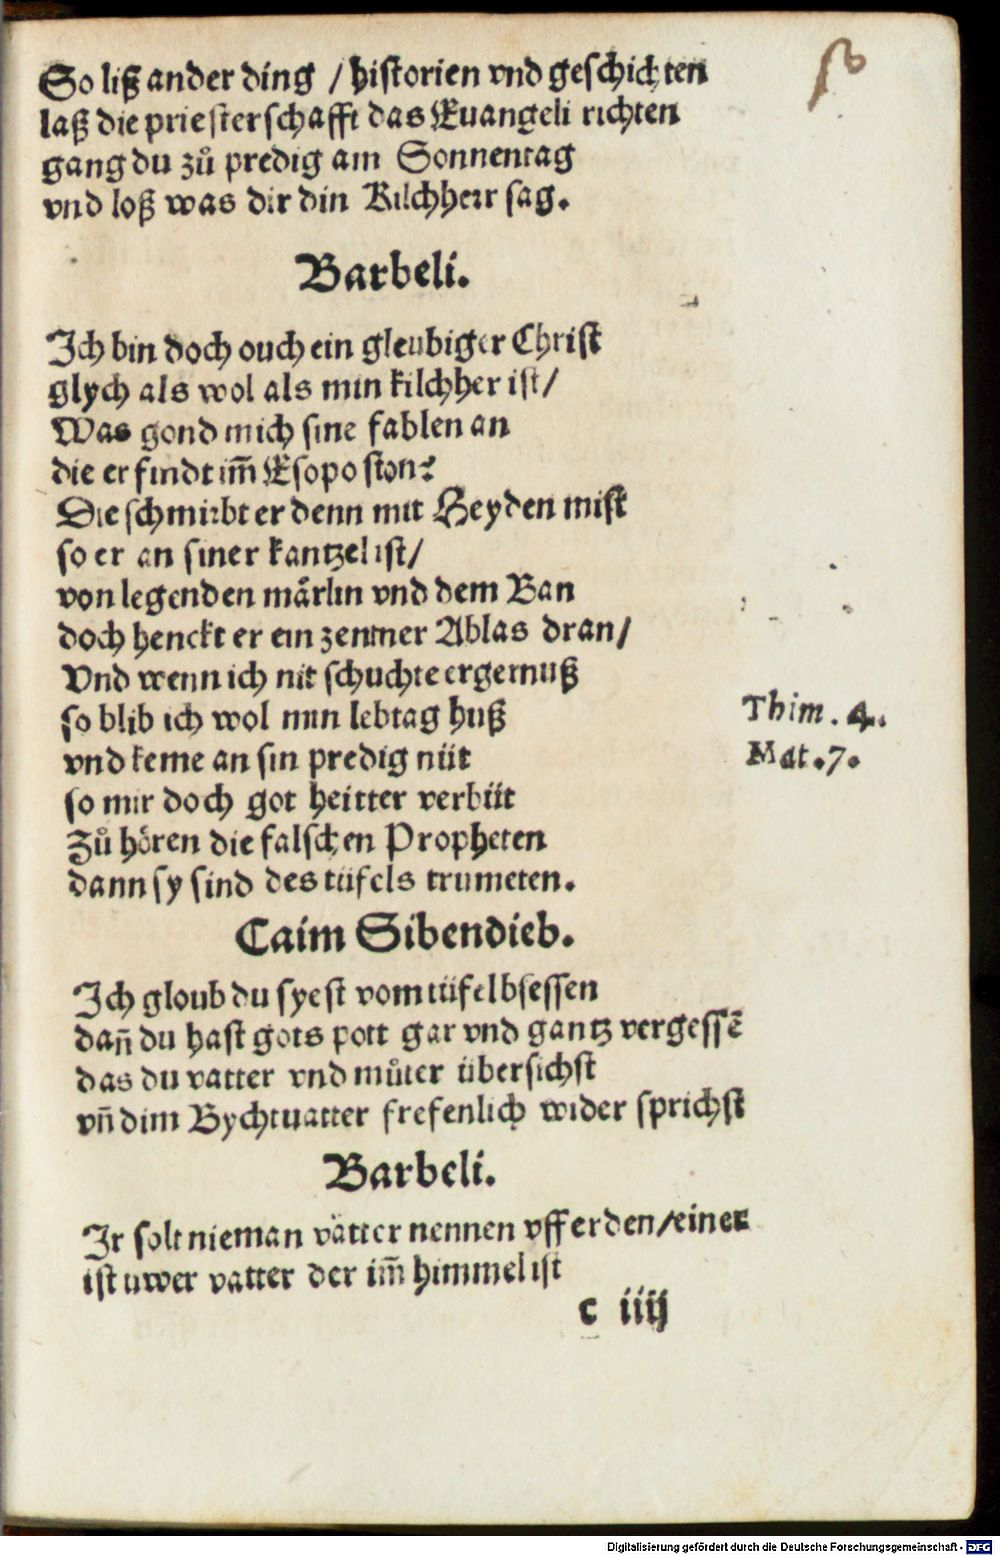 So liß ander ding / historien vnd geschichten
laß die priesterschafft das Euangeli richten
gang du zů predig am Sonnentag
vnd loß was dir din Kilchherr sag.
Barbeli.
Ich bin doch ouch ein gleubiger Christ
glych als wol als min kilchher ist/
Was gond mich sine fablen an
die er findt im̃ Esopo ston?
Die schmirbt er denn mit Heyden mist
so er an siner kantzel ist/
von legenden mårlin vnd dem Ban
doch henckt er ein zentner Ablas dran/
Vnd wenn ich nit schuchte ergernuß
so blib ich wol min lebtag huß
Thim. 4.
vnd keme an sin predig nüt
Mat. 7.
so mir doch got heitter verbüt
Zů hören die falschen Propheten
dann sy sind des tüfels trumeten.
Caim Sibendieb.
Ich gloub du syest vom tüfel bsessen
dañ du hast gots pott gar vnd gantz vergessē
das du vatter vnd můter übersichst
vñ dim Bychtuatter frefenlich wider sprichst
Barbeli.
Ir solt nieman vätter nennen vff erden/einer
ist uwer vatter der im̃ himmel ist
c iiij
Digitalisierung gefördert durch die Deutsche Forschungsgemeinschaft - DFG